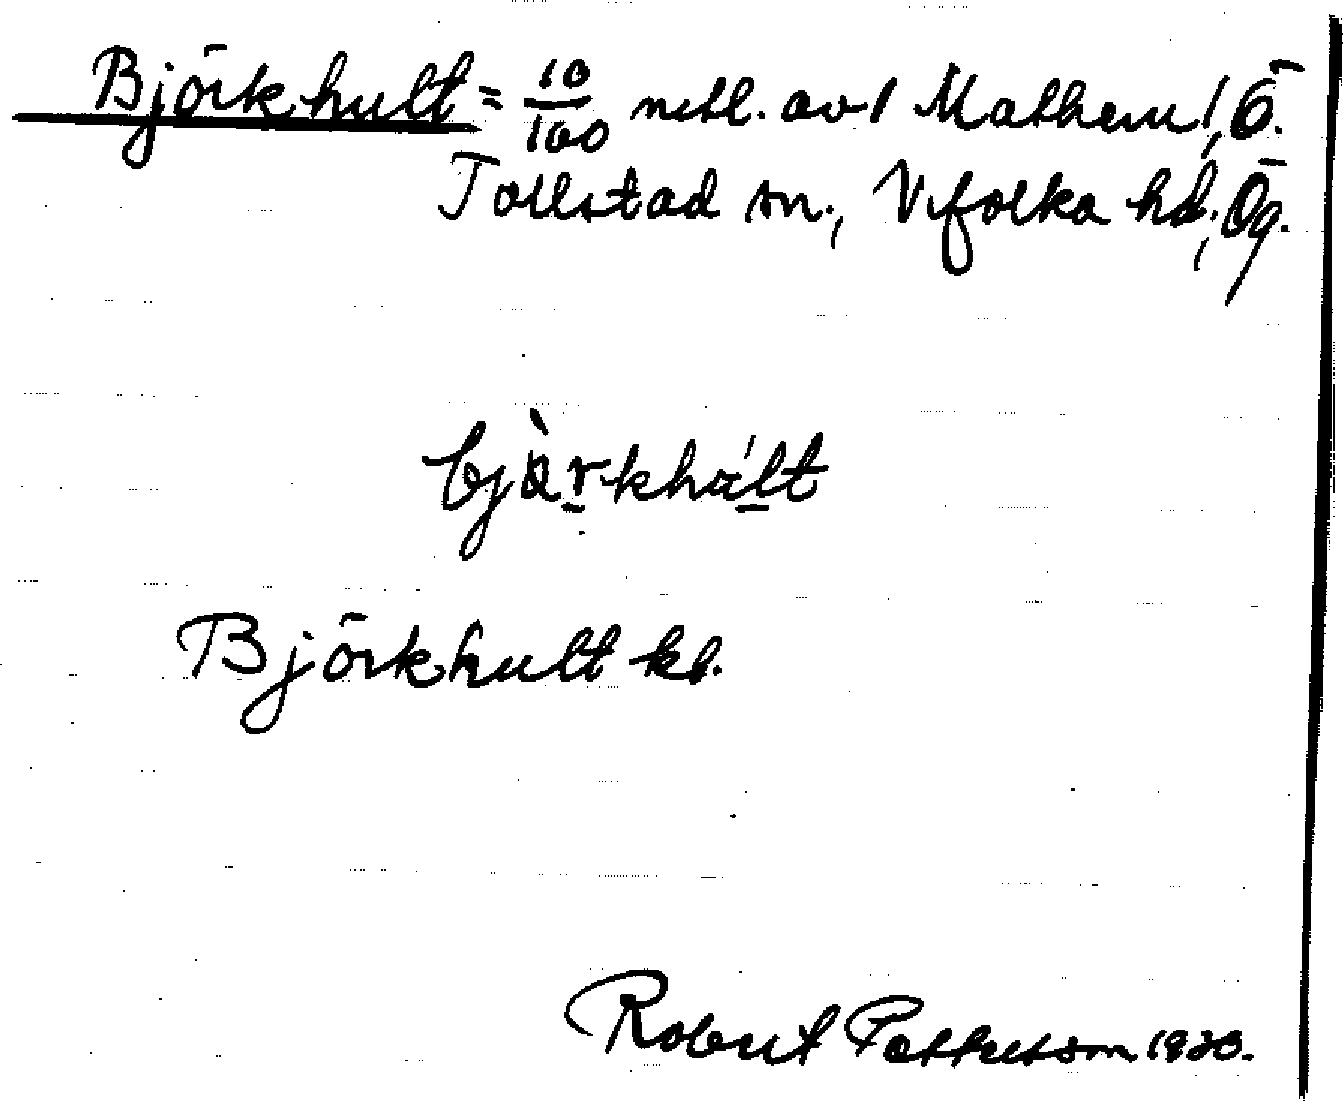 Björkhult = 10/100 mtl. av 1 Mathem, Ö.
Tollstad sn., Vifolka hd., Ög.
bjàrkhált
Björkhult kb.
Robert Pettersson 1933.